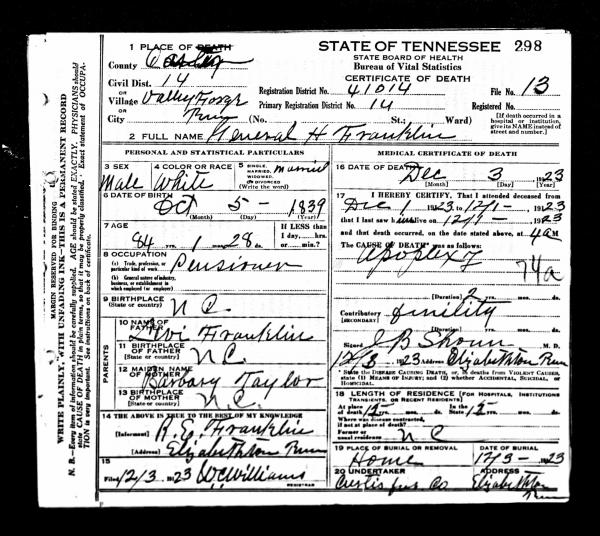 STATE OF TENNESSEE 298
STATE BOARD OF HEALTH
Bureau of Vital Statistics
CERTIFICATE OF DEATH
1 PLACE OF DEATH
County Carter
Civil Dist. 14
or
Village Valley Forge
or
City Tenn
Registration District No. 41014 File No. 13
Primary Registration District No. 14 Registered No.
(No. St.; Ward)
[If death occurred in a hospital or institution, give its NAME instead of street and number.]
2 FULL NAME General H Franklin
PERSONAL AND STATISTICAL PARTICULARS
3 SEX Male
4 COLOR OR RACE White
5 SINGLE, MARRIED, WIDOWED, OR DIVORCED (Write the word) Married
6 DATE OF BIRTH Oct 5 - 1839
(Month) (Day) (Year)
7 AGE
84 yrs. 1 mos. 28 ds.
If LESS than 1 day, hrs. or min.?
8 OCCUPATION Pensioner
(a) Trade, profession, or particular kind of work
(b) General nature of industry, business, or establishment in which employed (or employer)
9 BIRTHPLACE (State or country) N C
PARENTS
10 NAME OF FATHER Lwi Franklin
11 BIRTHPLACE OF FATHER (State or country) N.C.
12 MAIDEN NAME OF MOTHER Barbary Taylor
13 BIRTHPLACE OF MOTHER (State or country) N.C.
14 THE ABOVE IS TRUE TO THE BEST OF MY KNOWLEDGE
(Informant) R. E. Franklin
(Address) Elizabethton Tenn
15
Filed 12/3 1923 W C Williams
REGISTRAR
MEDICAL CERTIFICATE OF DEATH
16 DATE OF DEATH Dec 3, 1923
(Month) (Day) (Year)
17 I HEREBY CERTIFY, That I attended deceased from
Dec 1 1923, to 12/1- , 1923
that I last saw him alive on 12/1- 1923
and that death occurred, on the date stated above, at 4 a M
The CAUSE OF DEATH* was as follows:
Apoplexy
74a
(Duration) 2 yrs. mos. ds.
Contributory (SECONDARY) senility
(Duration) yrs. mos. ds.
Signed J B Shoun M. D.
12/3 1923 Address Elizabethton Tenn
* State the DISEASE CAUSING DEATH, or, in deaths from VIOLENT CAUSES, state (1) MEANS OF INJURY; and (2) whether ACCIDENTAL, SUICIDAL, or HOMICIDAL.
18 LENGTH OF RESIDENCE (FOR HOSPITALS, INSTITUTIONS, TRANSIENTS, OR RECENT RESIDENTS)
At place of death 15 yrs. mos. ds. In the State 15 yrs. mos. ds.
Where was disease contracted, if not at place of death?
Former or usual residence N C
19 PLACE OF BURIAL OR REMOVAL Home
DATE OF BURIAL 12/3- 1923
20 UNDERTAKER Curtis fur Co
ADDRESS Elizabethton Tenn
MARGIN RESERVED FOR BINDING
WRITE PLAINLY, WITH UNFADING INK—THIS IS A PERMANENT RECORD
N. B.—Every item of information should be carefully supplied. AGE should be stated EXACTLY. PHYSICIANS should state CAUSE OF DEATH in plain terms, so that it may be properly classified. Exact statement of OCCUPATION is very important. See instructions on back of certificate.